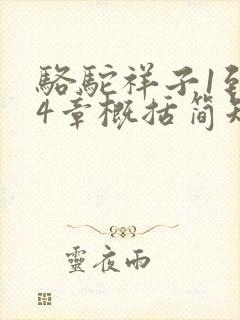 駱駝祥子1到
4章概括簡短
靈夜雨